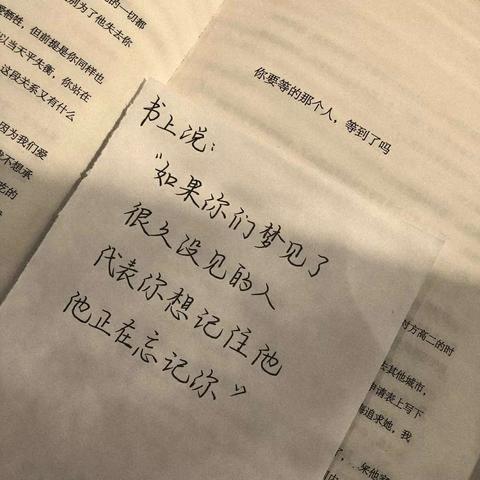 的一切都
别为了他失去你
牺牲，但前提是你同样也
以当天平失衡，你站在
这段关系又有什么
因为我们爱
我不想承
吃的
你要等的那个人，等到了吗
书上说：
“如果你们梦见了
很久没见的人
代表你想记住他
他正在忘记你”
对方高二的时
去其他城市，
申请表上写下
追求她，我